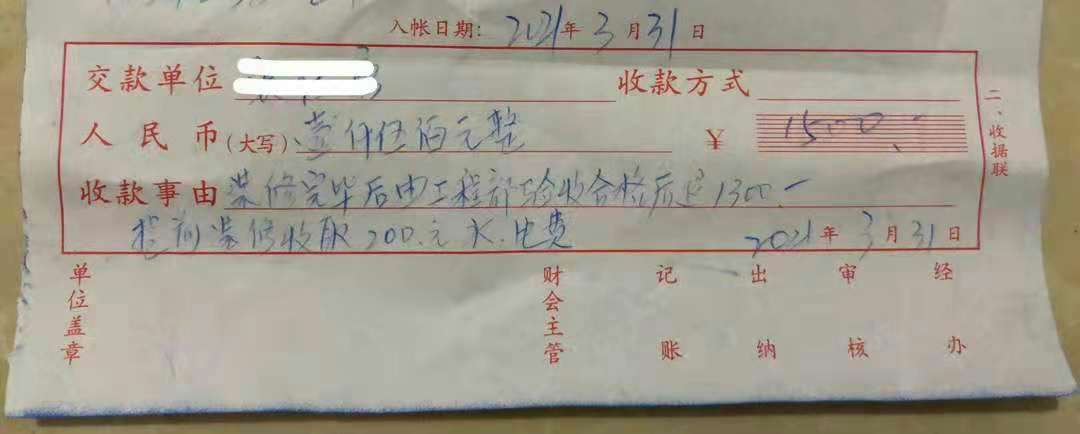 入帐日期：2021年3月31日
交款单位 收款方式
人民币（大写）壹仟伍佰元整 ￥1500.-
收款事由 装修完毕后由工程部验收合格后退1300.-
提前装修收取200.元水.电费 2021年3月31日
二、收据联
单位盖章 财会主管 记账 出纳 审核 经办